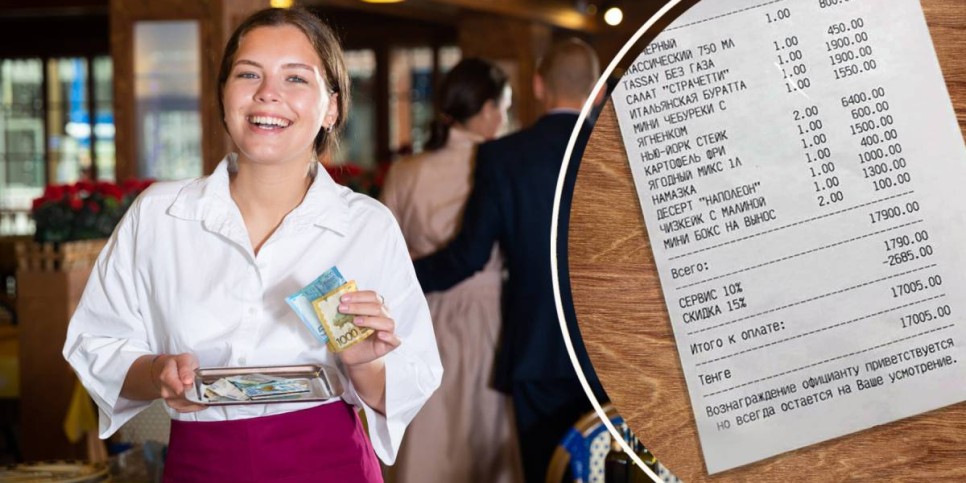 ЧЕРНЫЙ 1.00
КЛАССИЧЕСКИЙ 750 МЛ
TASSAY БЕЗ ГАЗА 1.00 450.00
САЛАТ "СТРАЧЕТТИ" 1.00 1900.00
ИТАЛЬЯНСКАЯ БУРАТТА 1.00 1900.00
МИНИ ЧЕБУРЕКИ С 1.00 1550.00
ЯГНЕНКОМ
НЬЮ-ЙОРК СТЕЙК 2.00 6400.00
КАРТОФЕЛЬ ФРИ 1.00 600.00
ЯГОДНЫЙ МИКС 1Л 1.00 1500.00
НАМАЗКА 1.00 400.00
ДЕСЕРТ "НАПОЛЕОН" 1.00 1000.00
ЧИЗКЕЙК С МАЛИНОЙ 1.00 1300.00
МИНИ БОКС НА ВЫНОС 2.00 100.00
Всего: 17900.00
СЕРВИС 10% 1790.00
СКИДКА 15% -2685.00
Итого к оплате: 17005.00
Тенге 17005.00
Вознаграждение официанту приветствуется
но всегда остается на Ваше усмотрение.
1000